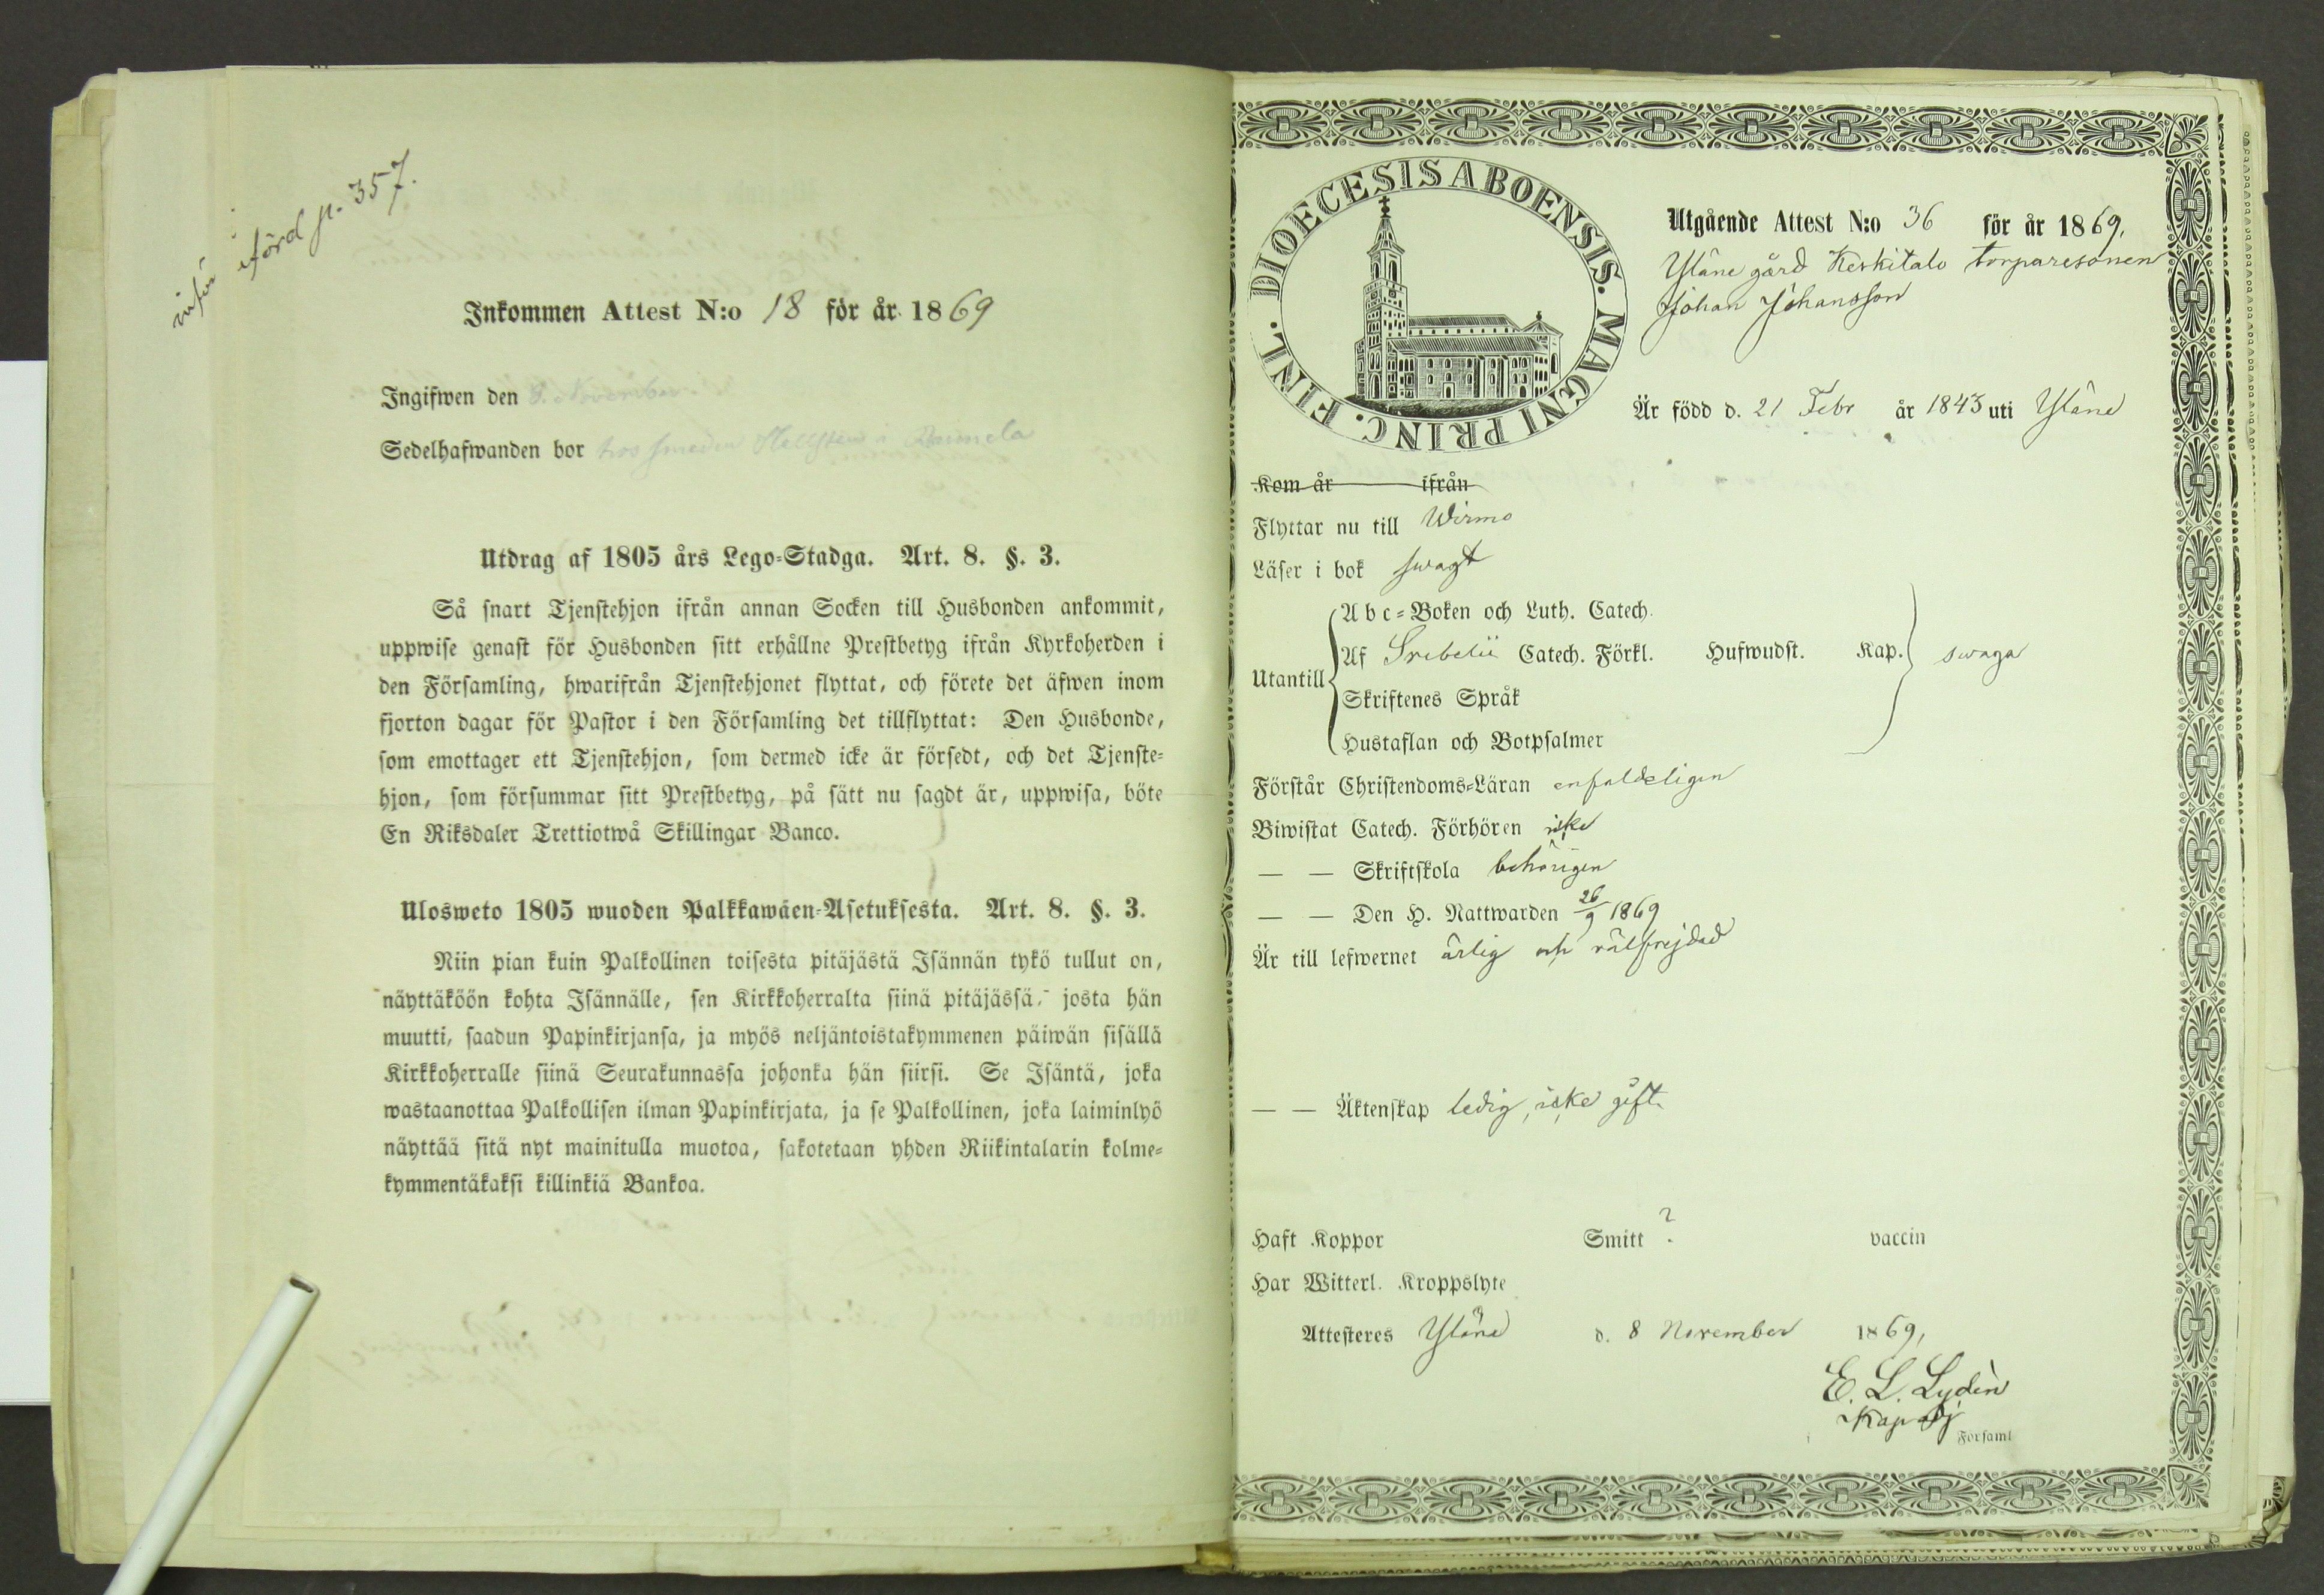 införd p. 357.
Inkommen Attest N:o 18 för år 1869
Ingifwen den 8. November
Sedelhafwanden bor hos smeden Hellsten i Raimela
Utdrag af 1805 års Lego-Stadga. Art. 8. §. 3.
Så snart Tjenstehjon ifrån annan Socken till Husbonden ankommit,
uppwise genast för Husbonden sitt erhållne Prestbetyg ifrån Kyrkoherden i
den Församling, hwarifrån Tjenstehjonet flyttat, och förete det äfwen inom
fjorton dagar för Pastor i den Församling det tillflyttat: Den Husbonde,
som emottager ett Tjenstehjon, som dermed icke är försedt, och det Tjenste-
hjon, som försummar sitt Prestbetyg, på sätt nu sagdt är, uppwisa, böte
En Riksdaler Trettiotwå Skillingar Banco.
Ulosweto 1805 wuoden Palkkawäen-Asetuksesta. Art. 8. §. 3.
Niin pian kuin Palkollinen toisesta pitäjästä Isännän tykö tullut on,
näyttäköön kohta Isännälle, sen Kirkkoherralta siinä pitäjässä, josta hän
muutti, saadun Papinkirjansa, ja myös neljäntoistakymmenen päiwän sisällä
Kirkkoherralle siinä Seurakunnassa johonka hän siirsi. Se Isäntä, joka
wastaanottaa Palkollisen ilman Papinkirjata, ja se Palkollinen, joka laiminlyö
näyttää sitä nyt mainitulla muotoa, sakotetaan yhden Riikintalarin kolme-
kymmentäkaksi killinkiä Bankoa.
DIOECESIS ABOENSIS. MAGNI PRINC. FINL.
Utgående Attest N:o 36 för år 1869,
Yläne gård Keskitalo torparesonen
Johan Johansson
Är född d. 21 Febr år 1843 uti Yläne
Kom år ifrån
Flyttar nu till Wirmo
Läser i bok swagt
Utantill
Abc-Boken och Luth. Catech.
Af Svebelii Catech. Förkl. Hufwudst. Kap. swaga
Skriftenes Språk
Hustaflan och Botpsalmer
Förstår Christendoms-Läran enfaldeligen
Biwistat Catech. Förhören icke
— — Skriftskola behörigen
— — Den H. Nattwarden 26/9 1869
Är till lefwernet ärlig och välfrejdad
— — Äktenskap ledig, icke gift.
Haft Koppor Smitt ? vaccin
Har Witterl. Kroppslyte
Attesteres Yläne d. 8 November 1869,
E. L. Lydén
Kap adj
i Församl